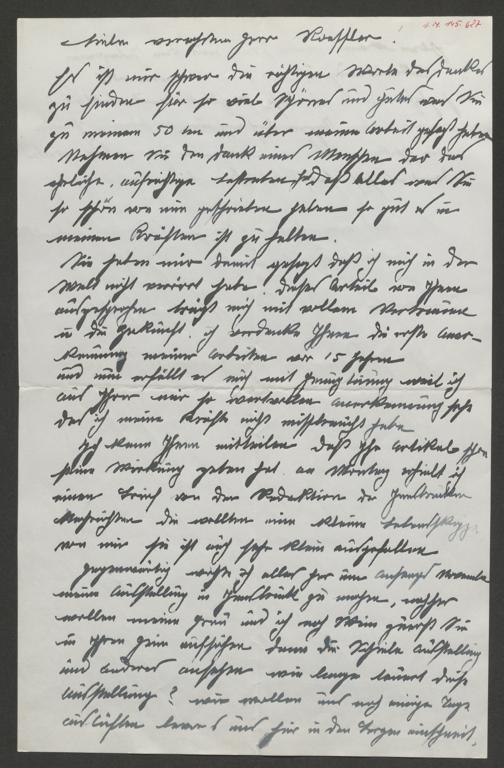 1.N. 145.687
Lieber verehrter Herr Roessler!
Es ist mir schwer die richtigen Worte des Dankes
zu finden für so viel Schönes und Gutes was Sie
zu meinem 50ten und über meine Arbeit gesagt haben
Nehmen Sie den Dank eines Menschen der das
ehrliche, aufrichtige Bestreben, daß alles was Sie
so schön von mir geschrieben haben so gut es in
meinen Kräften ist zu halten.
Sie haben mir damit gesagt daß ich mich in der
Welt nicht verirrt habe. Dieses Urteil von Ihnen
ausgesprochen trägt mich mit vollem Vertrauen
in die Zukunft. ich verdanke Ihnen die erste Aner-
kennung meiner Arbeiten vor 15 Jahren
und nun erfüllt es mich mit Genugtuung weil ich
aus Ihrer mir so wertvollen Anerkennung sehe
das ich meine Kräfte nicht missbraucht habe
Ich kann Ihnen mitteilen daß Ihr Artikel schon
seine Wirkung getan hat. am Montag erhielt ich
einen Brief von der Redaktion der Innsbrucker
Nachrichten die wollten eine kleine Lebensskizze
von mir sie ist auch sehr klein ausgefallen
gegenwärtig richte ich alles her um anfangs November
meine Ausstellung in Innsbruck zu machen, nachher
wollen meine Frau und ich nach Wien zuerst Sie
in Ihren Heim aufsuchen dann die Schiele Ausstellung
und anderes ansehen wie lange dauert diese
Ausstellung? wir wollen uns noch einige Tage
auslüften bevor es uns hier in den Bergen einschneit.